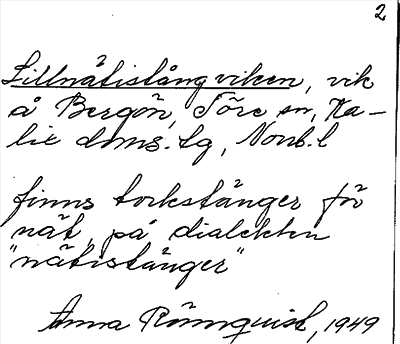 2
Lillnätistångviken, vik
å Bergön, Töre sn, Ka-
lix doms.tg, Norrb.l
finns torkstänger för
nät, på dialekten
"nätistänger"
Anna Rönnquist, 1949